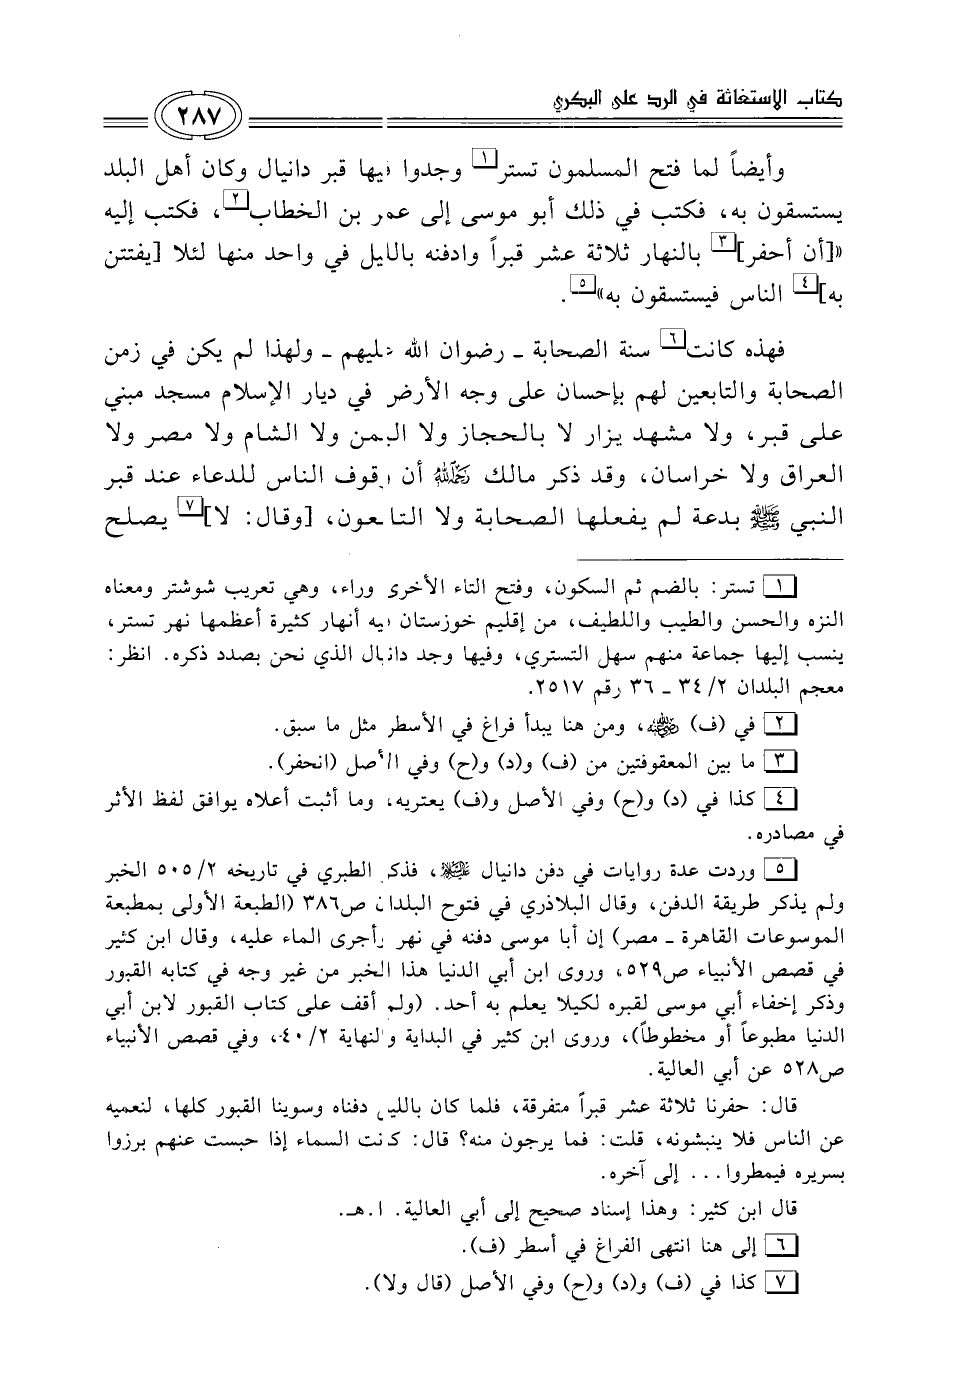 كتاب الاستغاثة في الرد على البكري
٢٨٧
وأيضاً لما فتح المسلمون تستر[١] وجدوا فيها قبر دانيال وكان أهل البلد
يستسقون به، فكتب في ذلك أبو موسى إلى عمر بن الخطاب[٢]، فكتب إليه
«[أن أحفر][٣] بالنهار ثلاثة عشر قبراً وادفنه بالليل في واحد منها لئلا [يفتتن
به][٤] الناس فيستسقون به»[٥].
فهذه كانت[٦] سنة الصحابة ـ رضوان الله عليهم ـ ولهذا لم يكن في زمن
الصحابة والتابعين لهم بإحسان على وجه الأرض في ديار الإسلام مسجد مبني
على قبر، ولا مشهد يزار لا بالحجاز ولا اليمن ولا الشام ولا مصر ولا
العراق ولا خراسان، وقد ذكر مالك رحمه الله أن وقوف الناس للدعاء عند قبر
النبي ﷺ بدعة لم يفعلها الصحابة ولا التابعون، [وقال: لا][٧] يصلح
[١] تستر: بالضم ثم السكون، وفتح التاء الأخرى وراء، وهي تعريب شوشتر ومعناه
النزه والحسن والطيب واللطيف، من إقليم خوزستان فيه أنهار كثيرة أعظمها نهر تستر،
ينسب إليها جماعة منهم سهل التستري، وفيها وجد دانيال الذي نحن بصدد ذكره. انظر:
معجم البلدان ٢/ ٣٤ ـ ٣٦ رقم ٢٥١٧.
[٢] في (ف) رضي الله عنه، ومن هنا يبدأ فراغ في الأسطر مثل ما سبق.
[٣] ما بين المعقوفتين من (ف) و(د) و(ح) وفي الأصل (انحفر).
[٤] كذا في (د) و(ح) وفي الأصل و(ف) يعتريه، وما أثبت أعلاه يوافق لفظ الأثر
في مصادره.
[٥] وردت عدة روايات في دفن دانيال عليه السلام، فذكر الطبري في تاريخه ٢/ ٥٠٥ الخبر
ولم يذكر طريقة الدفن، وقال البلاذري في فتوح البلدان ص٣٨٦ (الطبعة الأولى بمطبعة
الموسوعات القاهرة ـ مصر) إن أبا موسى دفنه في نهر وأجرى الماء عليه، وقال ابن كثير
في قصص الأنبياء ص٥٢٩، وروى ابن أبي الدنيا هذا الخبر من غير وجه في كتابه القبور
وذكر إخفاء أبي موسى لقبره لكيلا يعلم به أحد. (ولم أقف على كتاب القبور لابن أبي
الدنيا مطبوعاً أو مخطوطاً)، وروى ابن كثير في البداية والنهاية ٢/ ٤٠، وفي قصص الأنبياء
ص٥٢٨ عن أبي العالية.
قال: حفرنا ثلاثة عشر قبراً متفرقة، فلما كان بالليل دفناه وسوينا القبور كلها، لنعميه
عن الناس فلا ينبشونه، قلت: فما يرجون منه؟ قال: كانت السماء إذا حبست عنهم برزوا
بسريره فيمطروا... إلى آخره.
قال ابن كثير: وهذا إسناد صحيح إلى أبي العالية. ا.هـ.
[٦] إلى هنا انتهى الفراغ في أسطر (ف).
[٧] كذا في (ف) و(د) و(ح) وفي الأصل (قال ولا).